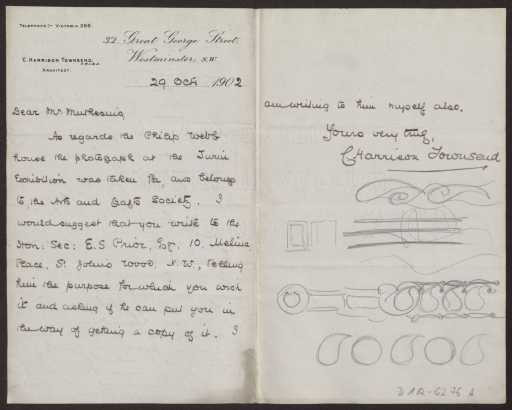 TELEPHONE :- VICTORIA 398.
32, Great George Street,
Westminster, S.W.
C. HARRISON TOWNSEND,
F.R.I.B.A.
ARCHITECT.
29 Oct 1902
Dear Mr Muthesius
As regards the Philip Webb
house the photograph at the Turin
Exhibition was taken by, and belongs
to the Arts and Crafts Society. I
would suggest that you write to the
Hon: Sec: E. S. Prior, Esq, 10. Melina
Place, St Johns Wood, N.W., telling
him the purpose for which you wish
it and asking if he can put you in
the way of getting a copy of it. I
am writing to him myself also.
Yours very truly,
C Harrison Townsend